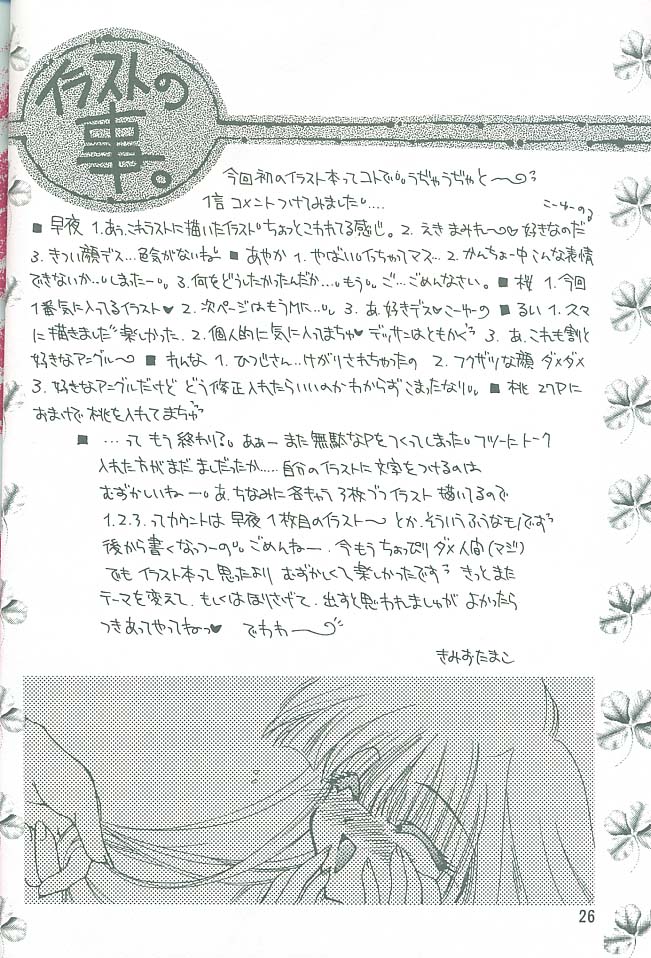 イラストの
事。
今回初のイラスト本ってコトで。。うぢゃうぢゃと〜
1言コメントつけてみました。....
こーゆーのる
■ 早夜 1. あぅ、これラストに描いたイラスト。ちょっとこわれてる感じ。2. えき まみれ〜♡ 好きなのだ
3. きつい顔デス...色気がないねー ■ あやか 1. やばい。イっちゃってマス... 2. かんちょー中 こんな表情
できないか...しまったー。。3. 何をどうしたかったんだか....もう。。ご...ごめんなさい。 ■ 桜 1. 今回
1番気に入ってるイラスト♥ 2. 次ページはもうMに...。 3. あ、好きデス♥こーゆーの ■ るい 1. スマ
に描きました 楽しかった。2. 個人的に気に入ってまちゅ♥ デッサンはともかく 3. あ、これも割と
好きなアングル〜 ■ れんな 1. ひつじさん...けがりされちゃったの 2. フクザツな顔 ダメダメ
3. 好きなアングルだけど どう修正入れたらいいのかわからずこまったなり。。 ■ 桃 27Pに
おまけで桃を入れてまちゅ
■ ...って もう終わり?。あぁー また無駄なPをつくってしまった。フツーにトーク
入れた方がまだ ましだったか.....自分のイラストに文字をつけるのは
むずかしいねー。あ、ちなみに各キャラ3枚づつイラスト描いてるので
1.2.3.ってカウントは 早夜 1枚目のイラスト〜 とか、そういうふうなもんです
後から書くなっつーの。。ごめんねー、今もうちょっぴりダメ人間(マジ)
でも イラスト本って思ったより むずかしくて楽しかったです きっとまた
テーマを変えて、もしくはほりさげて、出すと思われましゅが よかったら
つきあってやってねっ♥ でわわ〜
きみおたまこ
26